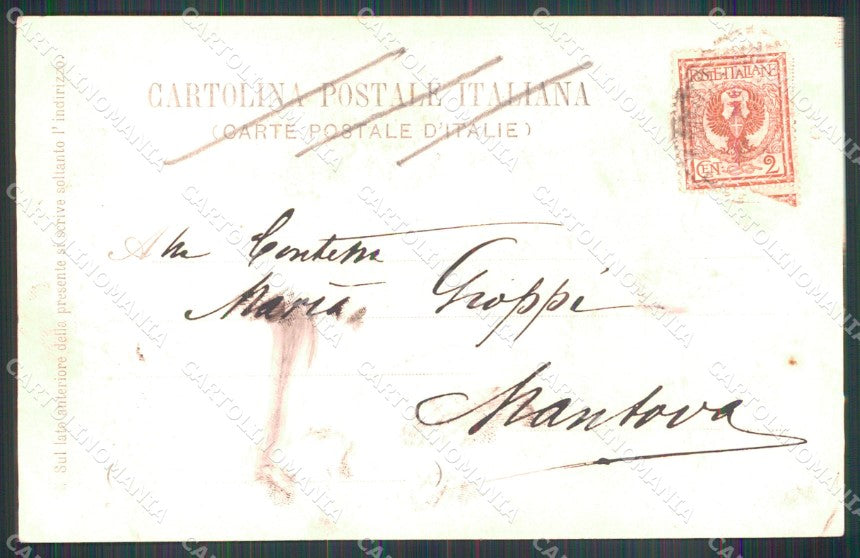 CARTOLINA POSTALE ITALIANA
(CARTE POSTALE D'ITALIE)
POSTE·ITALIANE
CEN. 2
Alla Contessa
Maria Groppi
Mantova
Sul lato anteriore della presente si scrive soltanto l'indirizzo.
CARTOLINOMANIA